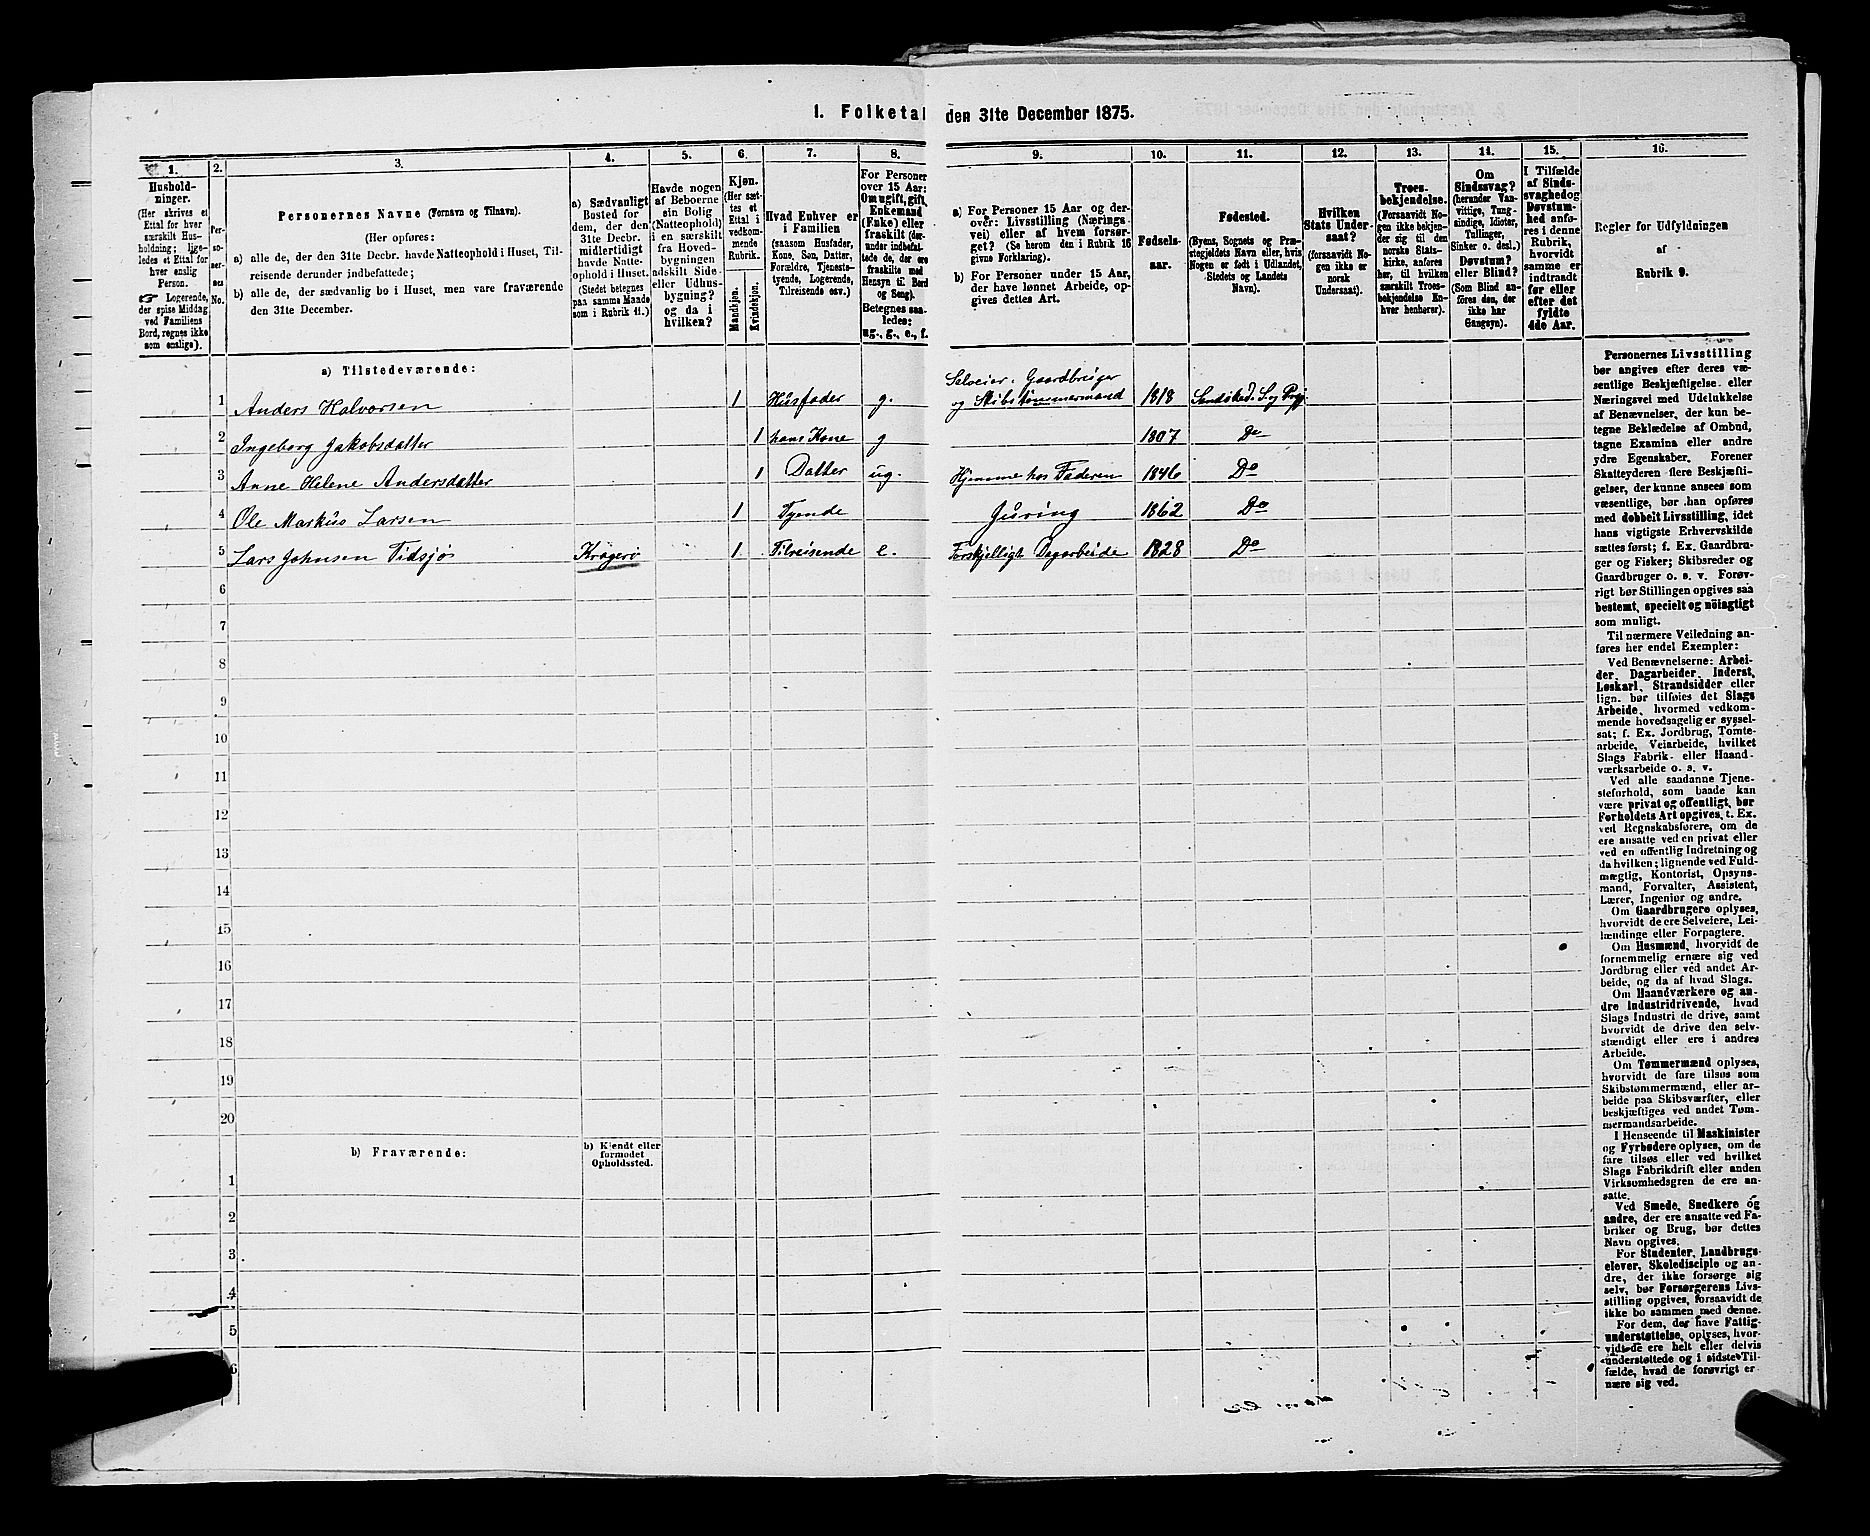 1. Folketal den 31te December 1875.
1. 2. 3. 4. 5. 6. 7. 8. 9. 10. 11. 12. 13. 14. 15. 16.
Hushold-
ninger.
(Her skrives et
Ettal for hver
særskilt Hus-
holdning; lige-
ledes et Ettal for
hver enslig
Person.
☞ Logerende,
der spise Middag
ved Familiens
Bord, regnes ikke
som enslige).
Per-
so-
ner-
nes
No.
Personernes Navne (Fornavn og Tilnavn).
(Her opføres:
a) alle de, der den 31te Decbr. havde Natteophold i Huset, Til-
reisende derunder indbefattede;
b) alle de, der sædvanlig bo i Huset, men vare fraværende
den 31te December.
a) Sædvanligt
Bosted for
dem, der den
31te Decbr.
midlertidigt
havde Natte-
ophold i Huset.
(Stedet betegnes
paa samme Maade
som i Rubrik 11.)
Havde nogen
af Beboerne
sin Bolig
(Natteophold)
i en særskilt
fra Hoved-
bygningen
adskilt Side-
eller Udhus-
bygning?
og da i
hvilken?
Kjøn.
(Her sæt-
tes et
Ettal i
vedkom-
mende
Rubrik.
Mandkjøn.
Kvindekjøn.
Hvad Enhver er
i Familien
(saasom Husfader,
Kone, Søn, Datter,
Forældre, Tjeneste-
tyende, Logerende,
Tilreisende osv.)
For Personer
over 15 Aar:
Om ugift, gift,
Enkemand
(Enke) eller
fraskilt (der-
under indbefat-
tede de, der ere
fraskilte med
Hensyn til Bord
og Seng).
Betegnes saa-
ledes:
ug., g., e., f.
a) For Personer 15 Aar og der-
over: Livsstilling (Nærings-
vei) eller af hvem forsør-
get? (Se herom den i Rubrik 16
givne Forklaring).
b) For Personer under 15 Aar,
der have lønnet Arbeide, op-
gives dettes Art.
Fødsels-
aar.
Fødested.
(Byens, Sognets og Præ-
stegjeldets Navn eller, hvis
Nogen er født i Udlandet,
Stedets og Landets
Navn).
Hvilken
Stats Under-
saat?
(forsaavidt No-
gen ikke er
norsk
Undersaat).
Troes-
bekjendelse.
(Forsaavidt No-
gen ikke bekjen-
der sig til den
norske Stats-
kirke, anføres
her, til hvilken
særskilt Troes-
bekjendelse En-
hver henhører).
Om
Sindssvag?
(herunder Van-
vittige, Tung-
sindige, Idioter,
Tullinger,
Sinker o. desl.)
Døvstum?
eller Blind?
(Som Blind an-
føres den, der
ikke har
Gangsyn).
I Tilfælde
af Sinds-
svaghed og
Døvstum-
hed anfø-
res i denne
Rubrik,
hvorvidt
samme er
indtraadt
før eller
efter det
fyldte
4de Aar.
Regler for Udfyldningen
af
Rubrik 9.
a) Tilstedeværende:
Selveier, Gaardbruger
1 Anders Halvorsen 1 Husfader g. og Skibstimmermand 1818 Sandøked. S. og Pgj.
2 Ingeborg Jakobsdatter 1 hans Kone g 1807 Do
3 Anne Helene Andersdatter 1 Datter ug. Hjemme hos Faderen 1846 Do
4 Ole Markus Larsen 1 Tyende Gjæring 1862 Do
5 Lars Johnsen Tidsjø Kragerø 1 Tilreisende e. Forskjelligt Dagarbeide 1828 Do
6
7
8
9
10
11
12
13
14
15
16
17
18
19
20
b) Fraværende:
b) Kjendt eller
formodet
Opholdssted.
1
2
3
4
5
6
Personernes Livsstilling
bør angives efter deres væ-
sentlige Beskjæftigelse eller
Næringsvei med Udelukkelse
af Benævnelser, der kun be-
tegne Beklædelse af Ombud,
tagne Examina eller andre
ydre Egenskaber. Forener
Skatteyderen flere Beskjæfti-
gelser, der kunne ansees som
væsentlige, bør han opføres
med dobbelt Livsstilling, idet
hans vigtigste Erhvervskilde
sættes først; f. Ex. Gaardbru-
ger og Fisker; Skibsreder og
Gaardbruger o. s. v. Forøv-
rigt bør Stillingen opgives saa
bestemt, specielt og nöiagtigt
som muligt.
Til nærmere Veiledning an-
føres her endel Exempler:
Ved Benævnelserne: Arbei-
der, Dagarbeider, Inderst,
Løskarl, Strandsidder eller
lign. bør tilføies det Slags
Arbeide, hvormed vedkom-
mende hovedsagelig er syssel-
sat; f. Ex. Jordbrug, Tomte-
arbeide, Veiarbeide, hvilket
Slags Fabrik- eller Haand-
værksarbeide o. s. v.
Ved alle saadanne Tjene-
steforhold, som baade kan
være privat og offentligt, bør
Forholdets Art opgives, t. Ex.
ved Regnskabsførere, om de
ere ansatte ved en privat eller
ved en offentlig Indretning og
da hvilken; lignende ved Fuld-
mægtig, Kontorist, Opsyns-
mand, Forvalter, Assistent,
Lærer, Ingeniør og andre.
Om Gaardbrugere oplyses,
hvorvidt de ere Selveiere, Lei-
lændinge eller Forpagtere.
Om Husmænd, hvorvidt de
fornemmelig ernære sig ved
Jordbrug eller ved andet Ar-
beide, og da af hvad Slags.
Om Haandværkere og an-
dre Industridrivende, hvad
Slags Industri de drive, samt
hvorvidt de drive den selv-
stændigt eller ere i andres
Arbeide.
Om Tømmermænd oplyses,
hvorvidt de fare tilsøs som
Skibstømmermænd, eller ar-
beide paa Skibsværfter, eller
beskjæftiges ved andet Tøm-
mermandsarbeide.
I Henseende til Maskinister
og Fyrbødere oplyses, om de
fare tilsøs eller ved hvilket
Slags Fabrikdrift eller anden
Virksomhedsgren de ere an-
satte.
Ved Smede, Snedkere og
andre, der ere ansatte ved Fa-
briker og Brug, bør dettes
Navn opgives.
For Studenter, Landbrugs-
elever, Skoledisciple og an-
dre, der ikke forsørge sig
selv, bør Forsørgerens Livs-
stilling opgives, forsaavidt de
ikke bo sammen med denne.
For dem, der have Fattig-
understøttelse, oplyses, hvor-
vidt de ere helt eller delvis
understøttede og i sidste Til-
fælde, hvad de forøvrigt er-
nære sig ved.